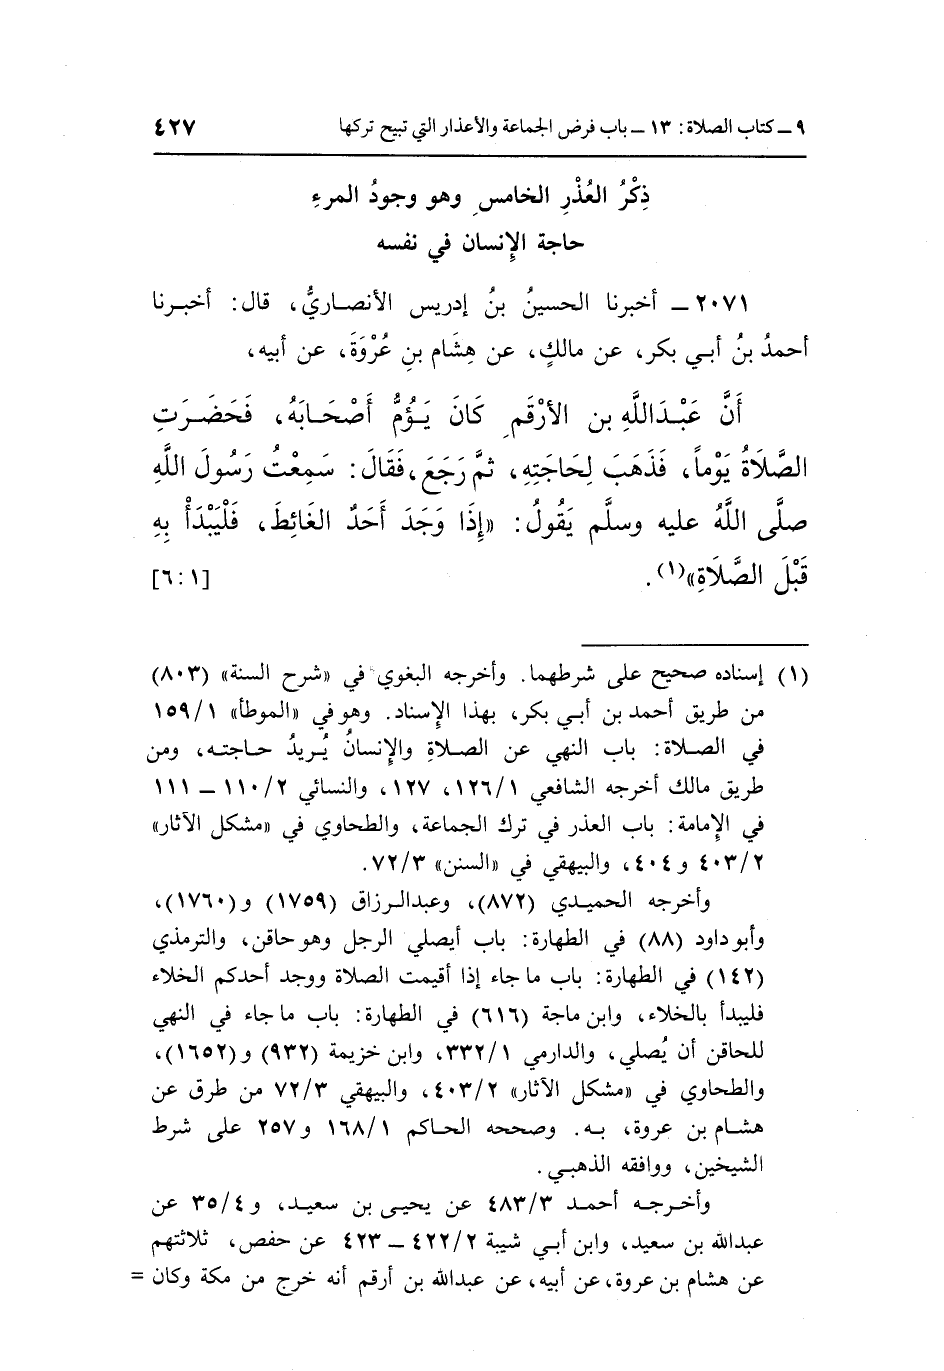 ٩ ـ كتاب الصلاة: ١٣ ـ باب فرض الجماعة والأعذار التي تبيح تركها ٤٢٧
ذِكْرُ العُذْرِ الخامسِ وهو وجودُ المرءِ
حاجة الإِنسان في نفسه
٢٠٧١ ـ أخبرنا الحسينُ بنُ إدريس الأنصاريُّ، قال: أخبرنا
أحمدُ بنُ أبي بكر، عن مالكٍ، عن هِشَام بنِ عُرْوَةَ، عن أبيه،
أَنَّ عَبْدَاللَّهِ بن الأَرْقَمِ كَانَ يَؤُمُّ أَصْحَابَهُ، فَحَضَرَتِ
الصَّلَاةُ يَوْماً، فَذَهَبَ لِحَاجَتِهِ، ثمَّ رَجَعَ، فَقَالَ: سَمِعْتُ رَسُولَ اللَّهِ
صلَّى اللَّهُ عليه وسلَّم يَقُولُ: «إِذَا وَجَدَ أَحَدٌ الغَائِطَ، فَلْيَبْدَأْ بِهِ
قَبْلَ الصَّلَاةِ»(١). [٦:١]
(١) إسناده صحيح على شرطهما. وأخرجه البغوي في «شرح السنة» (٨٠٣)
من طريق أحمد بن أبي بكر، بهذا الإِسناد. وهو في «الموطأ» ١٥٩/١
في الصلاة: باب النهي عن الصلاةِ والإِنسانُ يُريدُ حاجته، ومن
طريق مالك أخرجه الشافعي ١٢٦/١، ١٢٧، والنسائي ١١٠/٢ ـ ١١١
في الإِمامة: باب العذر في ترك الجماعة، والطحاوي في «مشكل الآثار»
٤٠٣/٢ و ٤٠٤، والبيهقي في «السنن» ٧٢/٣.
وأخرجه الحميدي (٨٧٢)، وعبدالرزاق (١٧٥٩) و(١٧٦٠)،
وأبو داود (٨٨) في الطهارة: باب أيصلي الرجل وهو حاقن، والترمذي
(١٤٢) في الطهارة: باب ما جاء إذا أقيمت الصلاة ووجد أحدكم الخلاء
فليبدأ بالخلاء، وابن ماجة (٦١٦) في الطهارة: باب ما جاء في النهي
للحاقن أن يُصلي، والدارمي ٣٣٢/١، وابن خزيمة (٩٣٢) و(١٦٥٢)،
والطحاوي في «مشكل الآثار» ٤٠٣/٢، والبيهقي ٧٢/٣ من طرق عن
هشام بن عروة، به. وصححه الحاكم ١٦٨/١ و ٢٥٧ على شرط
الشيخين، ووافقه الذهبي.
وأخرجه أحمد ٤٨٣/٣ عن يحيى بن سعيد، و ٣٥/٤ عن
عبدالله بن سعيد، وابن أبي شيبة ٤٢٢/٢ ـ ٤٢٣ عن حفص، ثلاثتهم
عن هشام بن عروة، عن أبيه، عن عبدالله بن أرقم أنه خرج من مكة وكان =